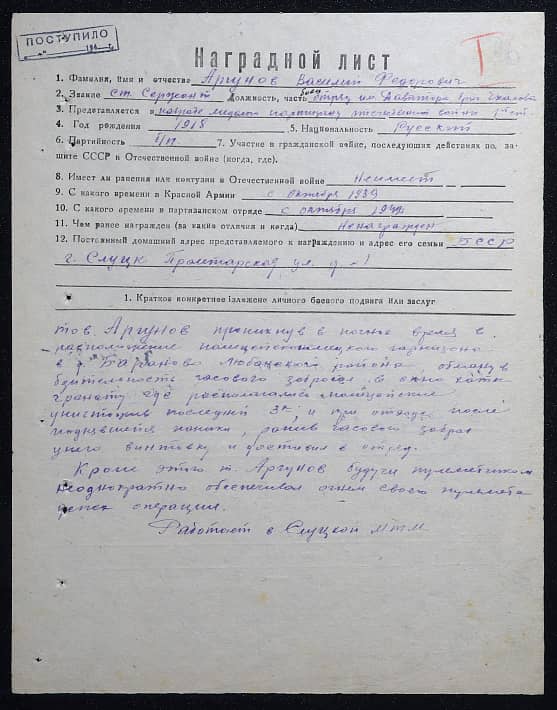 ПОСТУПИЛО
Наградной лист
1. Фамилия, имя и отчество Аргунов Василий Федорович
2. Звание ст. Сержант Должность, часть боец отряд им. Даватора бриг. Чкалова
3. Представляется к награде медали партизану отечественной войны 1й ст.
4. Год рождения 1918 5. Национальность Русский
6. Партийность б/п. 7. Участие в гражданской войне, последующих действиях по, за-
щите СССР к Отечественной войне (когда, где).
8. Имеет ли ранения или контузии в Отечественной войне Неимеет
9. С какого времени в Красной Армии с октября 1939
10. С какого времени в партизанском отряде с октября
11. Чем ранее награжден (ва какие отличия и когда) Ненагражден
12. Постоянный домашний адрес представляемого к награждению и адрес его семьи БССР
г. Слуцк Пролтарская ул. д-1
1. Краткое конкретнее изложение личного боевого подвига или заслуг
тов. Аргунов проникнув в ночное время в
расположение полицейсконемецкого гарнизона
в д. Баяново Любанского района, обманув
бдительность часового забросал в окно хаты
гранату где располагались полицейские
уничтожив последних 3х и при отходе после
поднявшейся паники, ранив часового забрал
унего винтовку и доставил в отряд.
Кроме этого т. Аргунов будучи пулеметчиком
неоднократно обеспечивал огнем своего пулемета
успех операции.
Работает в Слуцкой МТМ